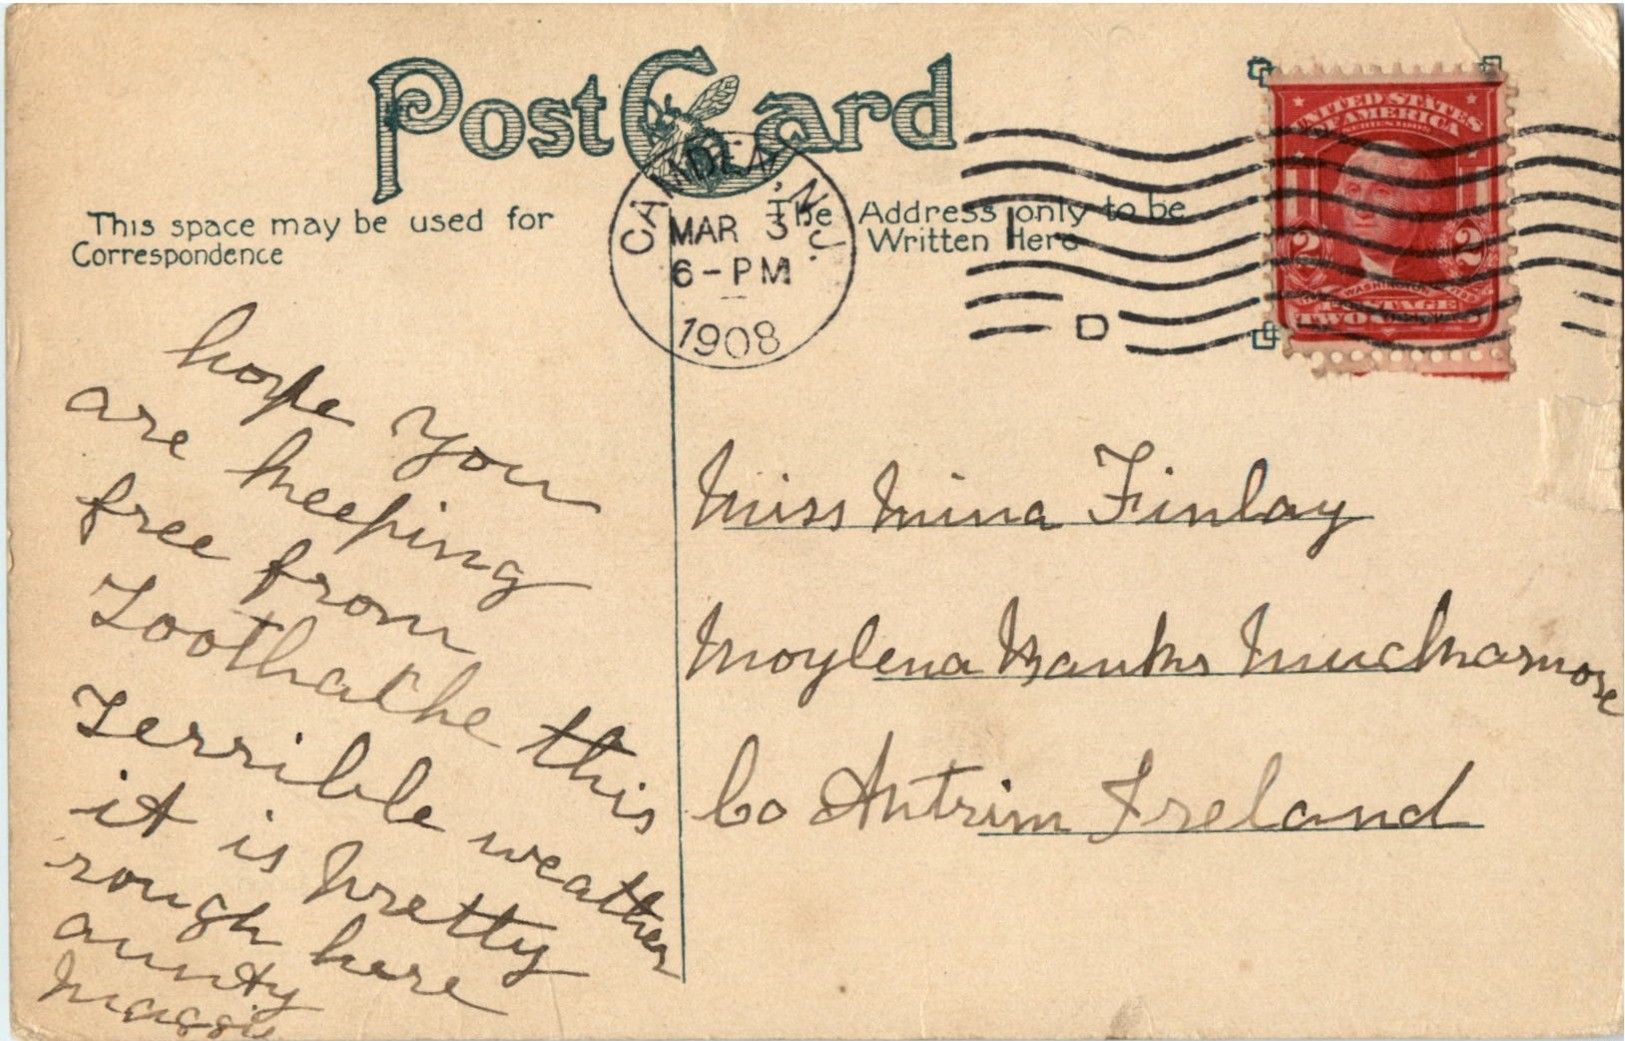 Post Card
This space may be used for
Correspondence
The Address only to be
Written Here
CAMDEN, N.J.
MAR 3
6-PM
1908
D
UNITED STATES
OF AMERICA
SERIES 1902
2 2
WASHINGTON
POSTAGE
TWO CENTS
hope you
are keeping
free from
Toothache this
Terrible weather
it is pretty
rough here
aunty
Maggie
Miss Mina Finlay
Moylena Banks Muckamore
Co Antrim Ireland